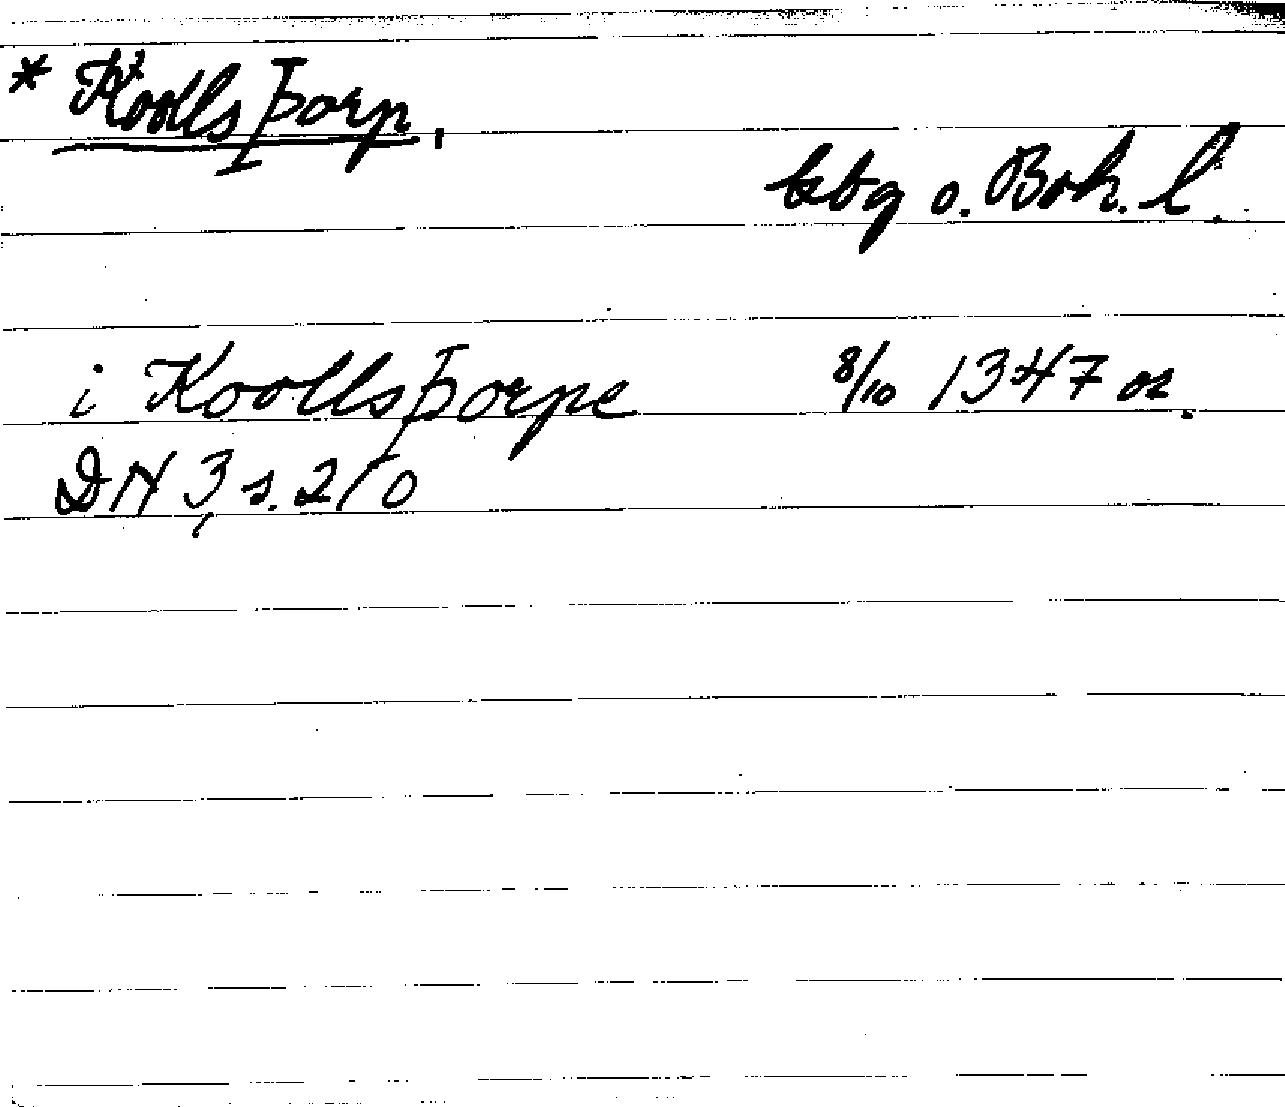 * Koollsþorp,
Gbg o. Boh. l.
i Koollsþorpe 8/10 1347 or.
DN 3, s. 210